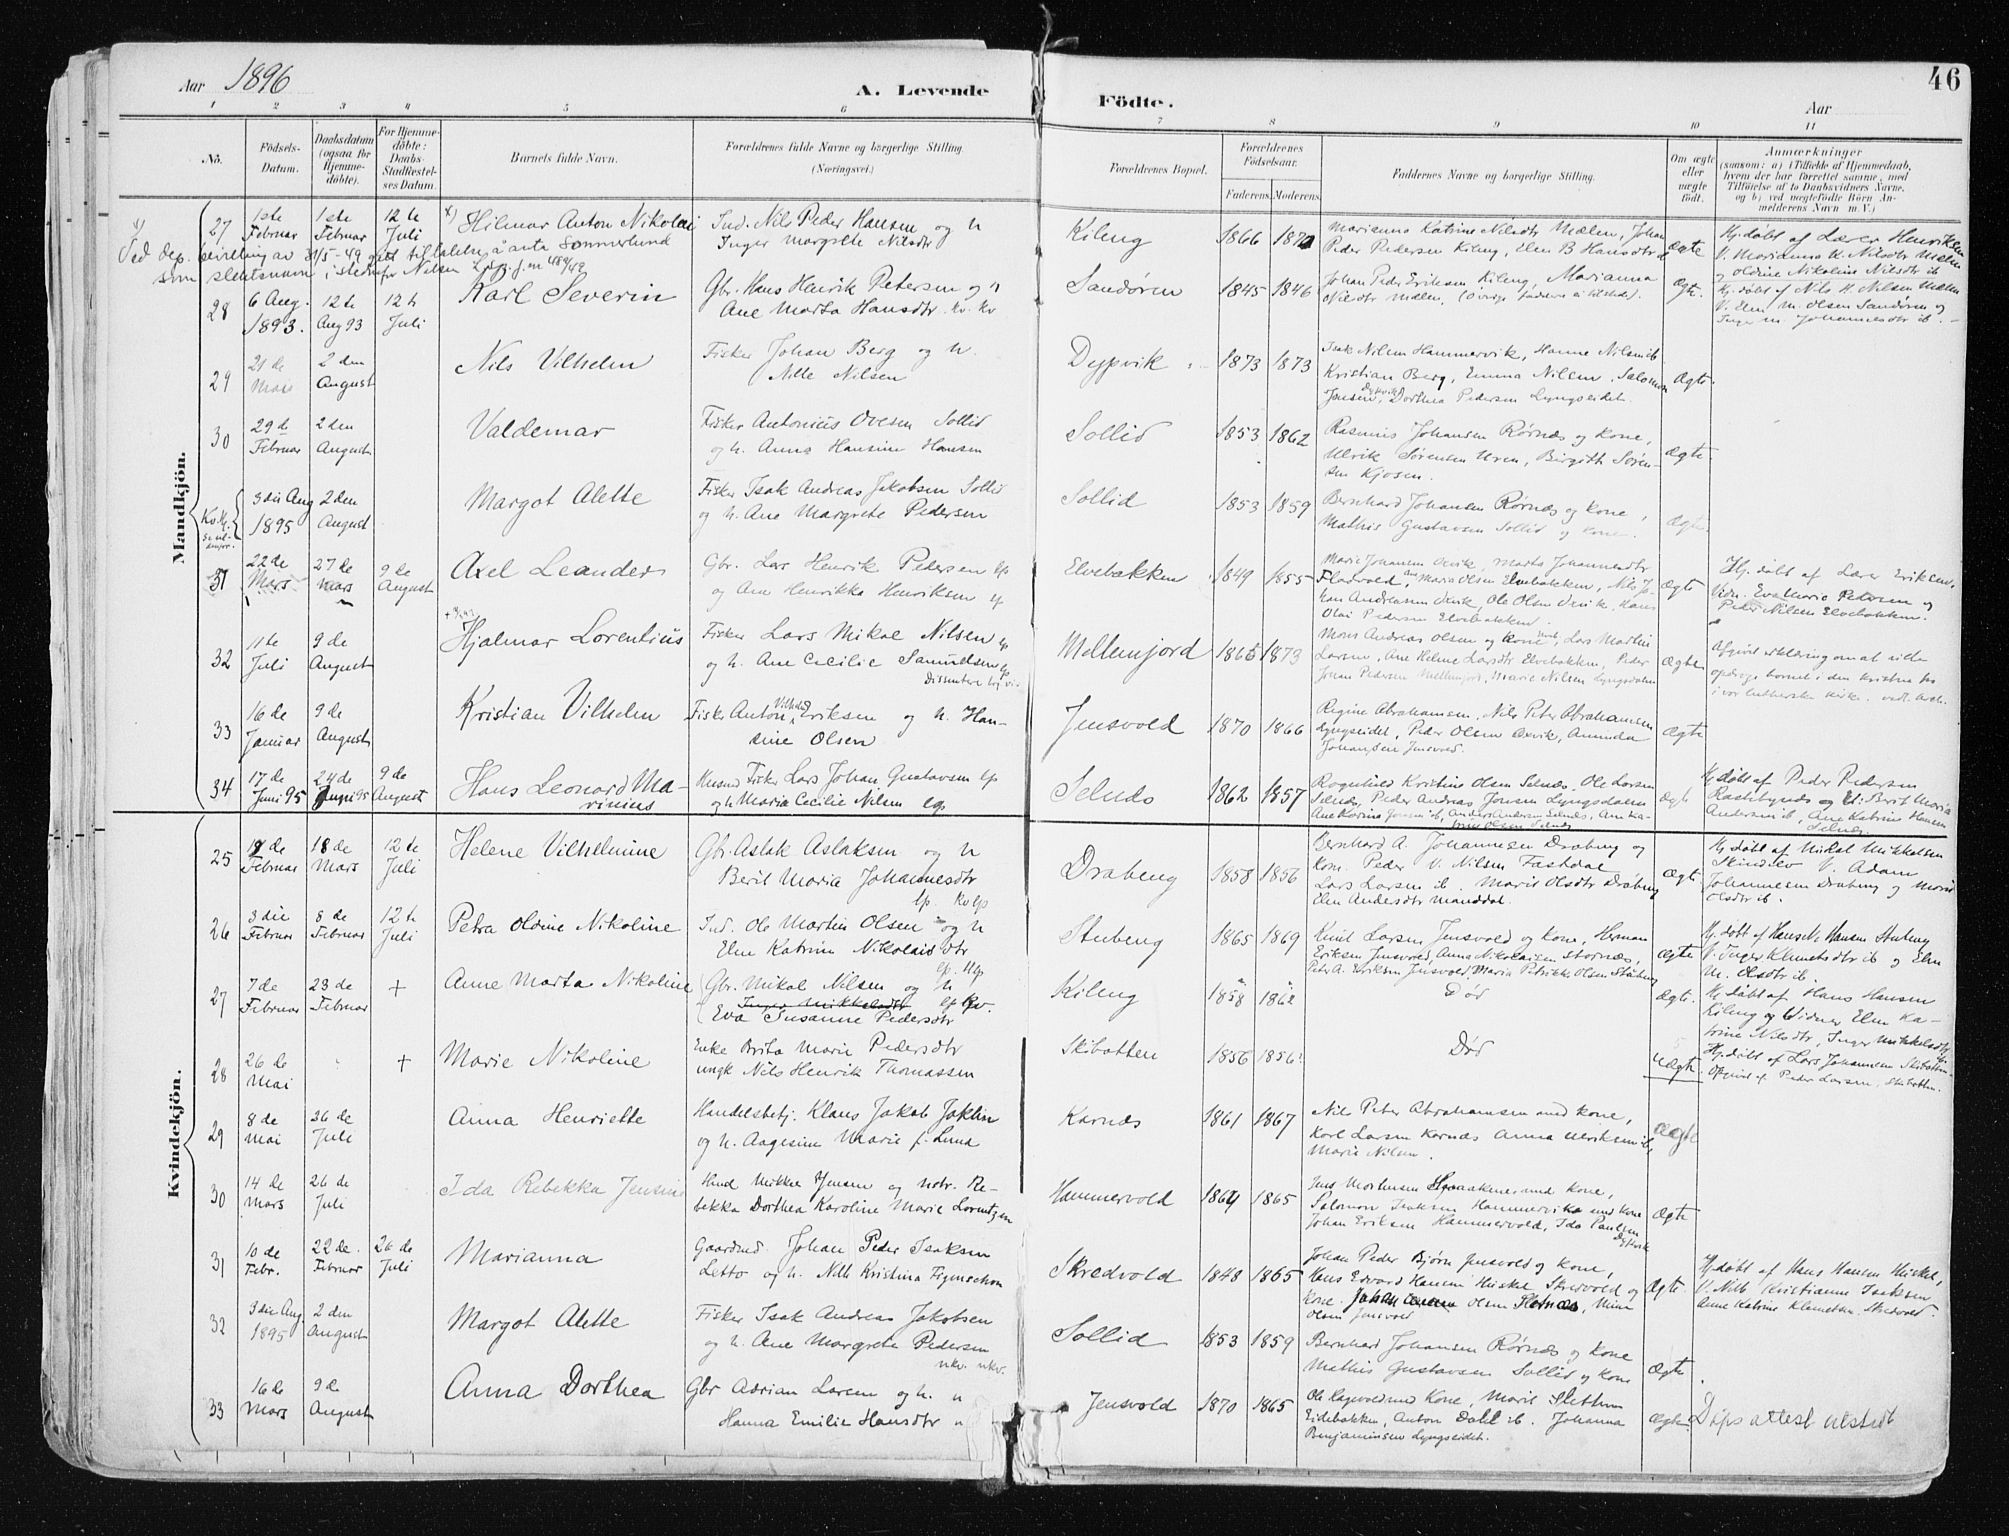 Aar 1896
A. Levende
Födte.
Aar
46
1 2 3 4 5 6 7 8 9 10 11
No.
Födsels-Datum.
Daabsdatum (ogsaa for Hjemmedöbte).
For Hjemmedöbte: Daabs-Stadfæstelses Datum.
Barnets fulde Navn.
Forældrenes fulde Navne og borgerlige Stilling. (Næringsvei.)
Forældrenes Bopæl.
Forældrenes Födselsaar. Faderens. Moderens.
Faddernes Navne og borgerlige Stilling.
Om ægte eller uægte födt.
Anmærkninger (saasom: a) i Tilfælde af Hjemmedaab, hvem der har forrettet samme, med Tilföielse af to Daabsvidners Navne, og b) ved uægtefödte Börn Anmelderens Navn m. V.)
Mandkjön.
27 1ste Februar 1ste Februar 12te Juli x) Hilmar Anton Nikolai Ind. Nils Peder Hansen og h Inger Margrete Nilsdtr Kileng 1866 Marianna Katrine Nilsdtr Mælen, Johan Peder Pedersen Kileng, Elen B Hansdtr ægte Hj. døbt af Lærer Henriksen V. Marianna K. Nilsdtr Mælen og Oldine Nikoline Nilsdtr ib
x) Ved dep. bevilling av 31/5-49 gitt tillatelse å anta Sommerlund
som slektsnavn istedenfor Nilsen
28 6 Aug. 1893. 12te Aug 93 12te Juli Karl Severin Gbr. Hans Henrik Petersen og h Ane Marta Hansdtr. kv. kv Sandøren 1845 1846 Johan Peder Eriksen Kileng, Marianna Nilsdtr Mælen, (Øvrige faddere ei tilstede). Ægte. Hj. døbt af Nils H. Nilsen Mælen V. Elen M. Olsen Sandøren og Inger M. Johannesdtr ib.
29 21de Mai 2den August Nils Vilhelm Fisker Johan Berg og h. Nille Nilsen Dypvik 1873 1873 Isak Nilsen Hammervik, Hanne Nilsen ib Kristian Berg, Emma Nilsen, Salomon Jensen Dypvik, Dorthea Pedersen Lyngseidet. Ægte.
30 29de Februar 2den August Valdemar Fisker Antonius Ovesen Sollid og h. Anna Hansine Hansen Sollid 1853 1862 Rasmus Johansen Rørnæs og Kone, Ulrik Sørensen Uren, Birgitte Sørensen Kjosen. Ægte.
3die Aug 1895 2den August Margot Alette Fisker Isak Andreas Jakobsen Sollid og h. Ane Margrete Pedersen Sollid 1853 1859 Bernhard Johansen Rørnæs og Kone, Mathis Gustavsen Sollid og Kone. Ægte
31 22de Mars 27de Mars 9de August Axel Leander Gbr. Lars Henrik Pedersen lp og Ane Henrikka Henriksen lp Elvebakken 1849 1855 Marie Johansen Oxvik, Marta Johannesdtr Flaavold, Maria Olsen Elvebakken, Nils Johan Andreassen Oxvik, Ole Olsen Oxvik, Hans Olai Pedersen Elvebakken. Ægte Hj. døbt af Lærer Eriksen. Vidn. Eva Marie Petersen og Peder Nilsen Elvebakken.
32 11te Juli 9de August Hjalmar Lorentius Fisker Lars Mikal Nilsen lp og h. Ane Cecilie Samuelsen lp Dissentere Mellemjord 1865 1873 Mons Andreas Olsen og Kone, Lars Martin Larsen, Ane Helene Larsdtr Elvebakken, Peder Johan Pedersen Mellemjord, Marie Nilsen Lyngsdalen Ægte Afgivet erklæring om at ville opdrage barnet i den kristne tro i vor lutherske kirke.
33 16de Januar 9de August Kristian Vilhelm Fisker Anton Vilhelm Eriksen og h. Hansine Olsen Jensvold 1870 1866 Regine Abrahamsen, Nils Peter Abrahamsen Lyngseidet, Peder Olsen Oxvik, Amunda Johansen Jensvold. Ægte
34 17de Juni 95 24de Juni 95 9de August Hans Leonard Marinius Husmd Fisker Lars Johan Gustavsen lp og h. Maria Cecilie Nilsen lp. Selnæs 1862 1857 Ragnhild Kristine Olsen Selnæs, Ole Larsen Selnæs, Peder Andreas Jensen Lyngsdalen Ane Karina Jensen ib, Anders Andersen Selnæs, Ægte Hj. døbt af Peder Pedersen Rastebynæs og V: Berit Maria Andersen ib, Ane Katrine Hansen Selnæs
Kvindekjön.
25 Februar 18de Mars 12te Juli Helene Vilhelmine Gbr. Aslak Aslaksen og h Berit Maria Johannesdtr lp. kv lp Drabeng 1858 1856 Bernhard A. Johannesen Drabeng og Kone. Peder V. Nilsen Fastdal Lars Larsen ib. Marit Olsdtr Drabeng Elen Andersdtr Manddal. Ægte Hj. døbt af Mikal Mikkelsen Skindelv V. Adam Johannesen Drabeng og Marit Olsdtr ib.
26 3die Februar 8de Februar 12te Juli Petra Oldine Nikoline Ind. Ole Martin Olsen og h Elen Katrine Nikolaisdtr Stubeng 1865 1869 Knut Larsen Jensvold og Kone, Herman Eriksen Jensvold, Anna Nikolaisen Stornæs, Peter A. Eriksen Jensvold, Maria Petrikke Olsen Stubeng Ægte Hj. døbt af Hans N. Hansen Stubeng V. Inger Klemetsdtr ib og Elen M. Olsdtr ib.
27 7de Februar 23de Februar + Anne Marta Nikoline Gbr. Mikal Nilsen og h Eva Susanne Pedersdtr Kileng 1858 1862 Død Ægte. Hj. døbt af Hans Hansen Kileng og Vidner Elen Katrine Nilsdtr, Inger Mikkelsdtr ib.
28 26de Mai + Marie Nikoline Enke Brita Marie Pedersdtr ungk Nils Henrik Thomassen Skibotten 1856 1856! Død Uægte. Hj. døbt af Lars Johannesen Skibotten. Opgivet af Peder Larsen, Skibotten.
29 8de Mai 26de Juli Anna Henriette Handelsbetj. Klaus Jakob Jaklin og h. Aagesine Marie f. Lund Karnæs 1861 1867 Nils Peter Abrahamsen med Kone, Karl Larsen Karnæs Anna Ulriksen ib, Marie Nilsen. Ægte
30 14de Mars 26de Juli Ida Rebekka Jensine Husmd Mikkel Jensen og hstr. Rebekka Dorthea Karoline Marie Lorentzen Hammervold 1864 1865 Jens Mortensen med Kone, Salomon Isaksen Hammervik med Kone Johan Eriksen Hammervold, Ida Paulsen Dypvik Ægte
31 10de Febr. 22de. Februar 26de Juli Marianna Gaardmd. Johan Peder Isaksen Letto og h. Nille Kristina Figenschou Skredvold 1848 1865 Johan Peder Bjørn Jensvold og Kone, Hans Edvard Hansen Huskel Skredvold og Kone. Olsen Stornæs, Olsen Jensvold Ægte. Hj. døbt af Hans Hansen Huskel, V. Nille Kristianne Isaksen Anne Katrine Klemetsen Skredvold.
32 3die Aug 1895 2den August Margot Alette Fisker Isak Andreas Jakobsen og h. Ane Margrete Pedersen nkv. nkv. Sollid 1853 1859 Bernhard Johansen Rørnæs og Kone Mathis Gustavsen Sollid og Kone Ægte
33 16de Mars 9de August Anna Dorthea Gbr Adrian Larsen og h. n Hanna Emilie Hansdtr n Jensvold 1870 1865 Ole Ragvald med Kone, Marit Slettum Eidebakken, Anton Dahl ib. Johanna Benjaminsen Lyngseidet. Ægte Dåps attest utstedt